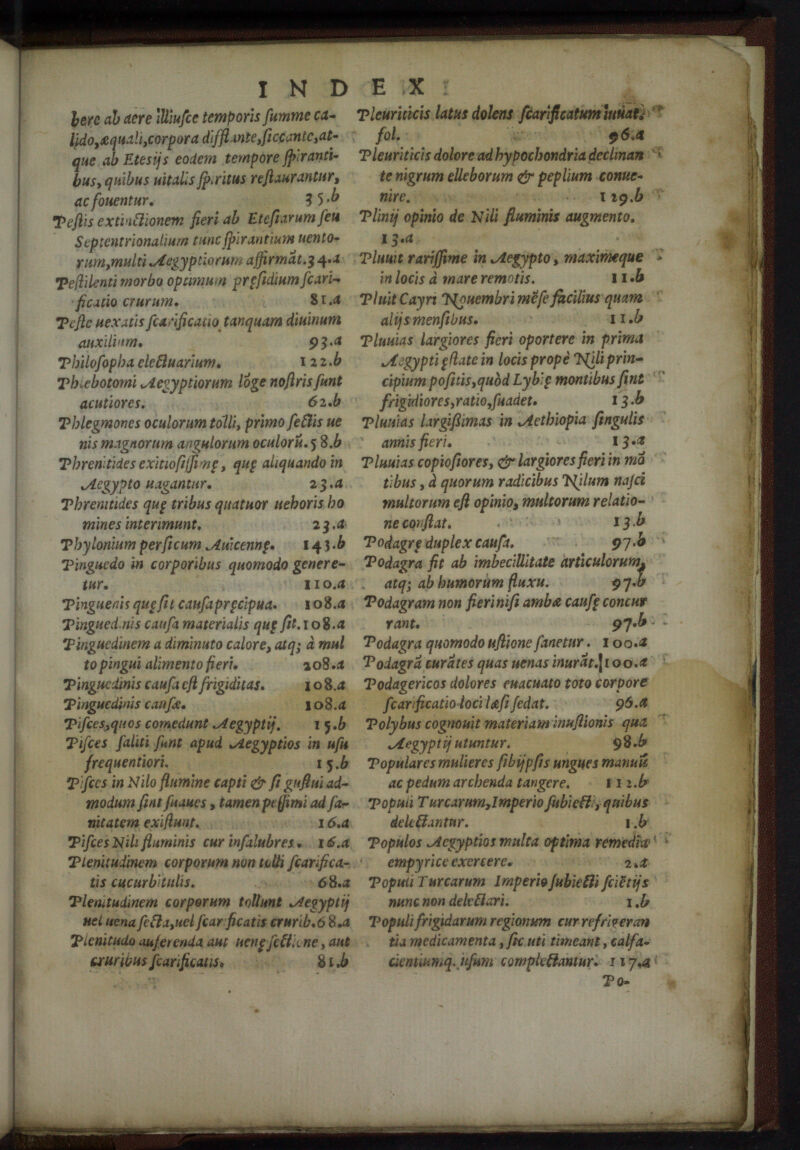 INDEX
bere ab aere illiusce temporis summe ca-
lido, æquali, corpora difflante, siccante, at-
que ab Etesijs eodem tempore spiranti-
bus, quibus uitalis spiritus restaurantur,
ac fouentur. 35.b
Pestis extinctionem fieri ab Etesiarum seu
Septentrionalium tunc spirantium uento-
rum, multi Aegyptiorum affirmāt. 34.a
Pestilenti morbo optimum pręsidium scari-
ficatio crurum. 81.a
Peste uexatis scarificatio tanquam diuinum
auxilium. 93.a
Philosopha electuarium. 122.b
Phlebotomi Aegyptiorum lōge nostris sunt
acutiores. 62.b
Phlegmones oculorum tolli, primo sectis ue
nis magnorum angulorum oculorū. 58.b
Phrenitides exitiosissimę, quę aliquando in
Aegypto uagantur. 23.a
Phrenitides quę tribus quatuor uehoris ho
mines interimunt. 23.a
Phylonium persicum Auicennę. 143.b
Pinguedo in corporibus quomodo genere-
tur. 110.a
Pinguenis quę fit causa pręcipua. 108.a
Pinguednis causa materialis quę sit. 108.a
Pinguedinem a diminuto calore, atq; à mul
to pingui alimento fieri. 208.a
Pinguedinis causa est frigiditas. 108.a
Pinguedinis causæ. 108.a
Pisces, quos comedunt Aegyptij. 15.b
Pisces saliti sunt apud Aegyptios in usu
frequentiori. 15.b
Pisces in Nilo flumine capti & si gustui ad-
modum sint suaues, tamen pessimi ad sa-
nitatem existunt. 16.a
Pisces Nili fluminis cur insalubres. 16.a
Plenitudinem corporum non tolli scarifica-
tis cucurbitulis. 68.a
Plenitudinem corporum tollunt Aegyptij
uel uena secta, uel scarificatis crurib. 68.a
Plenitudo auferenda aut uenę sectione, aut
cruribus scarificatis. 81.b
Pleuriticis latus dolens scarificatum iuuat.
fol. 96.a
Pleuriticis dolore ad hypochondria declinan
te nigrum elleborum & peplium conue-
nire. 129.b
Plinij opinio de Nili fluminis augmento.
13.a
Pluuit rarissime in Aegypto, maximeque
in locis à mare remotis. 11.b
Pluit Cayri Nouembri mēse facilius quam
alijs mensibus. 11.b
Pluuias largiores fieri oportere in prima
Aegypti ęstate in locis propè Nili prin-
cipium positis, quòd Lybię montibus sint
frigidiores, ratio, suadet. 13.b
Pluuias largissimas in Aethiopia singulis
annis fieri. 13.a
Pluuias copiosiores, & largiores fieri in mō
tibus, à quorum radicibus Nilum nasci
multorum est opinio, multorum relatio-
ne constat. 13.b
Podagrę duplex causa. 97.b
Podagra fit ab imbecillitate articulorum,
atq; ab humorum fluxu. 97.b
Podagram non fieri nisi ambæ causę concur
rant. 97.b
Podagra quomodo ustione sanetur. 100.a
Podagrā curātes quas uenas inurāt. 100.a
Podagericos dolores euacuato toto corpore
scarificatio loci læsi sedat. 96.a
Polybus cognouit materiam inustionis qua
Aegyptij utuntur. 98.b
Populares mulieres sibijpsis ungues manuū
ac pedum archenda tangere. 112.b
Populi Turcarum, Imperio subiecti, quibus
delectantur. 1.b
Populos Aegyptios multa optima remedia
empyrice exercere. 2.a
Populi Turcarum Imperio subiecti scietijs
nunc non delectari. 1.b
Populi frigidarum regionum cur refrigeran
tia medicamenta, sic uti timeant, calfa-
cientiumq. usum complectantur. 117.a
Po-